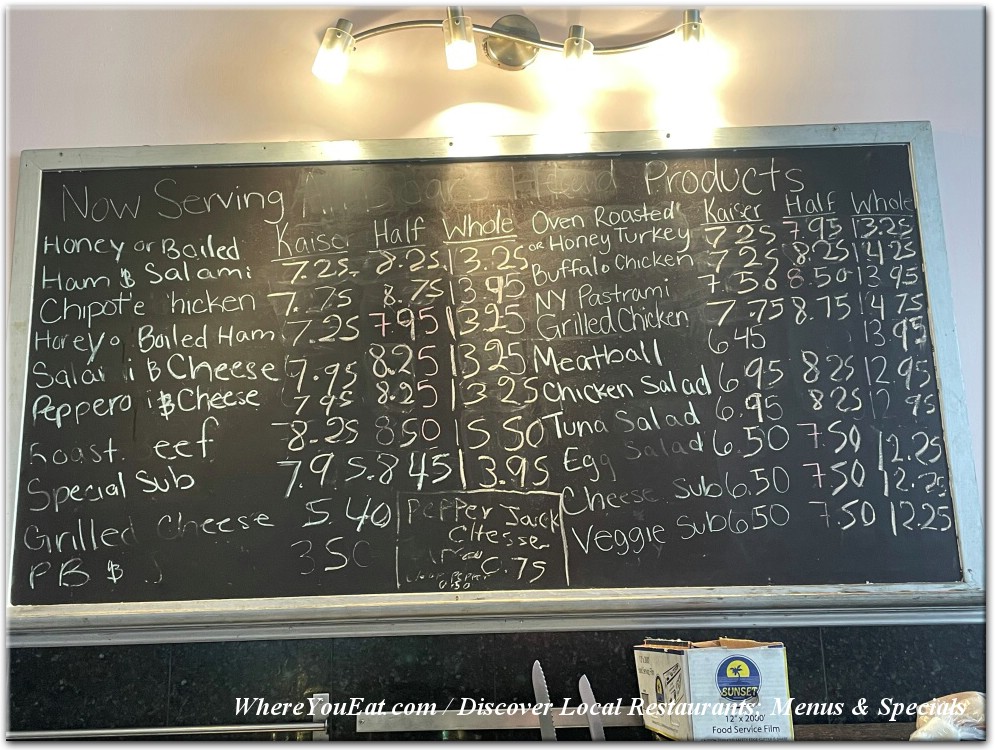 Now Serving Boar Head Products
Kaiser Half Whole
Honey or Boiled
Ham & Salami 7.25 8.25 13.25
Chipot e hicken 7.75 8.75 13.95
Honey o Boiled Ham 7.25 7.95 13.25
Sala i & Cheese 7.95 8.25 13.25
Peppero i & Cheese 7.95 8.25 13.25
oast eef 8.25 850 15.50
Special Sub 7.95 8 45 13.95
Grilled Cheese 5.40
PB & J 350
Pepper Jack
Cheese
0.75
0.50
Kaiser Half Whole
Oven Roasted
or Honey Turkey 7 25 7.95 13.25
Buffalo Chicken 7 25 8.25 14.25
NY Pastrami 7.50 8.50 13 95
Grilled Chicken 7.75 8.75 14 75
Meatball 6 45 13.95
Chicken Salad 6.95 8 25 12.95
Tuna Salad 6.95 8 25 12 95
Egg Salad 6.50 7.50 12.25
Cheese Sub 6.50 7.50 12.25
Veggie Sub 6.50 7.50 12.25
SUNSET
12" x 2000'
Food Service Film
WhereYouEat.com / Discover Local Restaurants: Menus & Specials